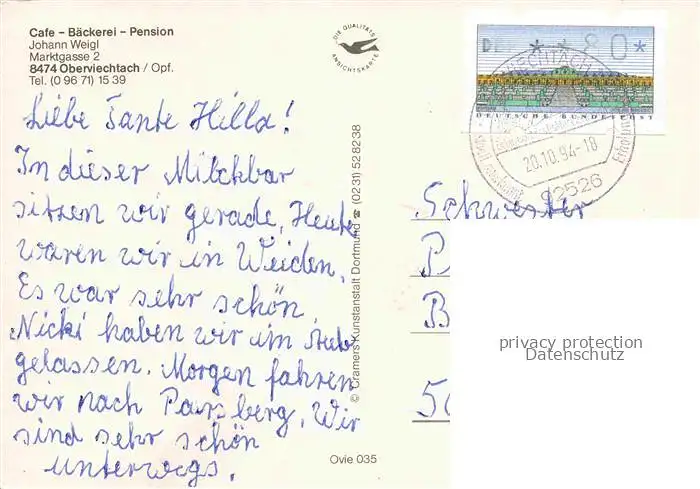 Cafe – Bäckerei – Pension
Johann Weigl
Marktgasse 2
8474 Oberviechtach / Opf.
Tel. (0 96 71) 15 39
DIE QUALITÄTS
ANSICHTSKARTE
DEUTSCHE BUNDESPOST
20.10.94-18
92526
Liebe Tante Hilla!
In dieser Milchbar
sitzen wir gerade. Heute
waren wir in Weiden.
Es war sehr schön.
Nicki haben wir im Aub
gelassen. Morgen fahren
wir nach Parsberg. Wir
sind sehr schön
unterwegs.
© Cramers Kunstanstalt Dortmund ☎ (0231) 52 82 38
Ovie 035
Schwester
P
B
privacy protection
Datenschutz